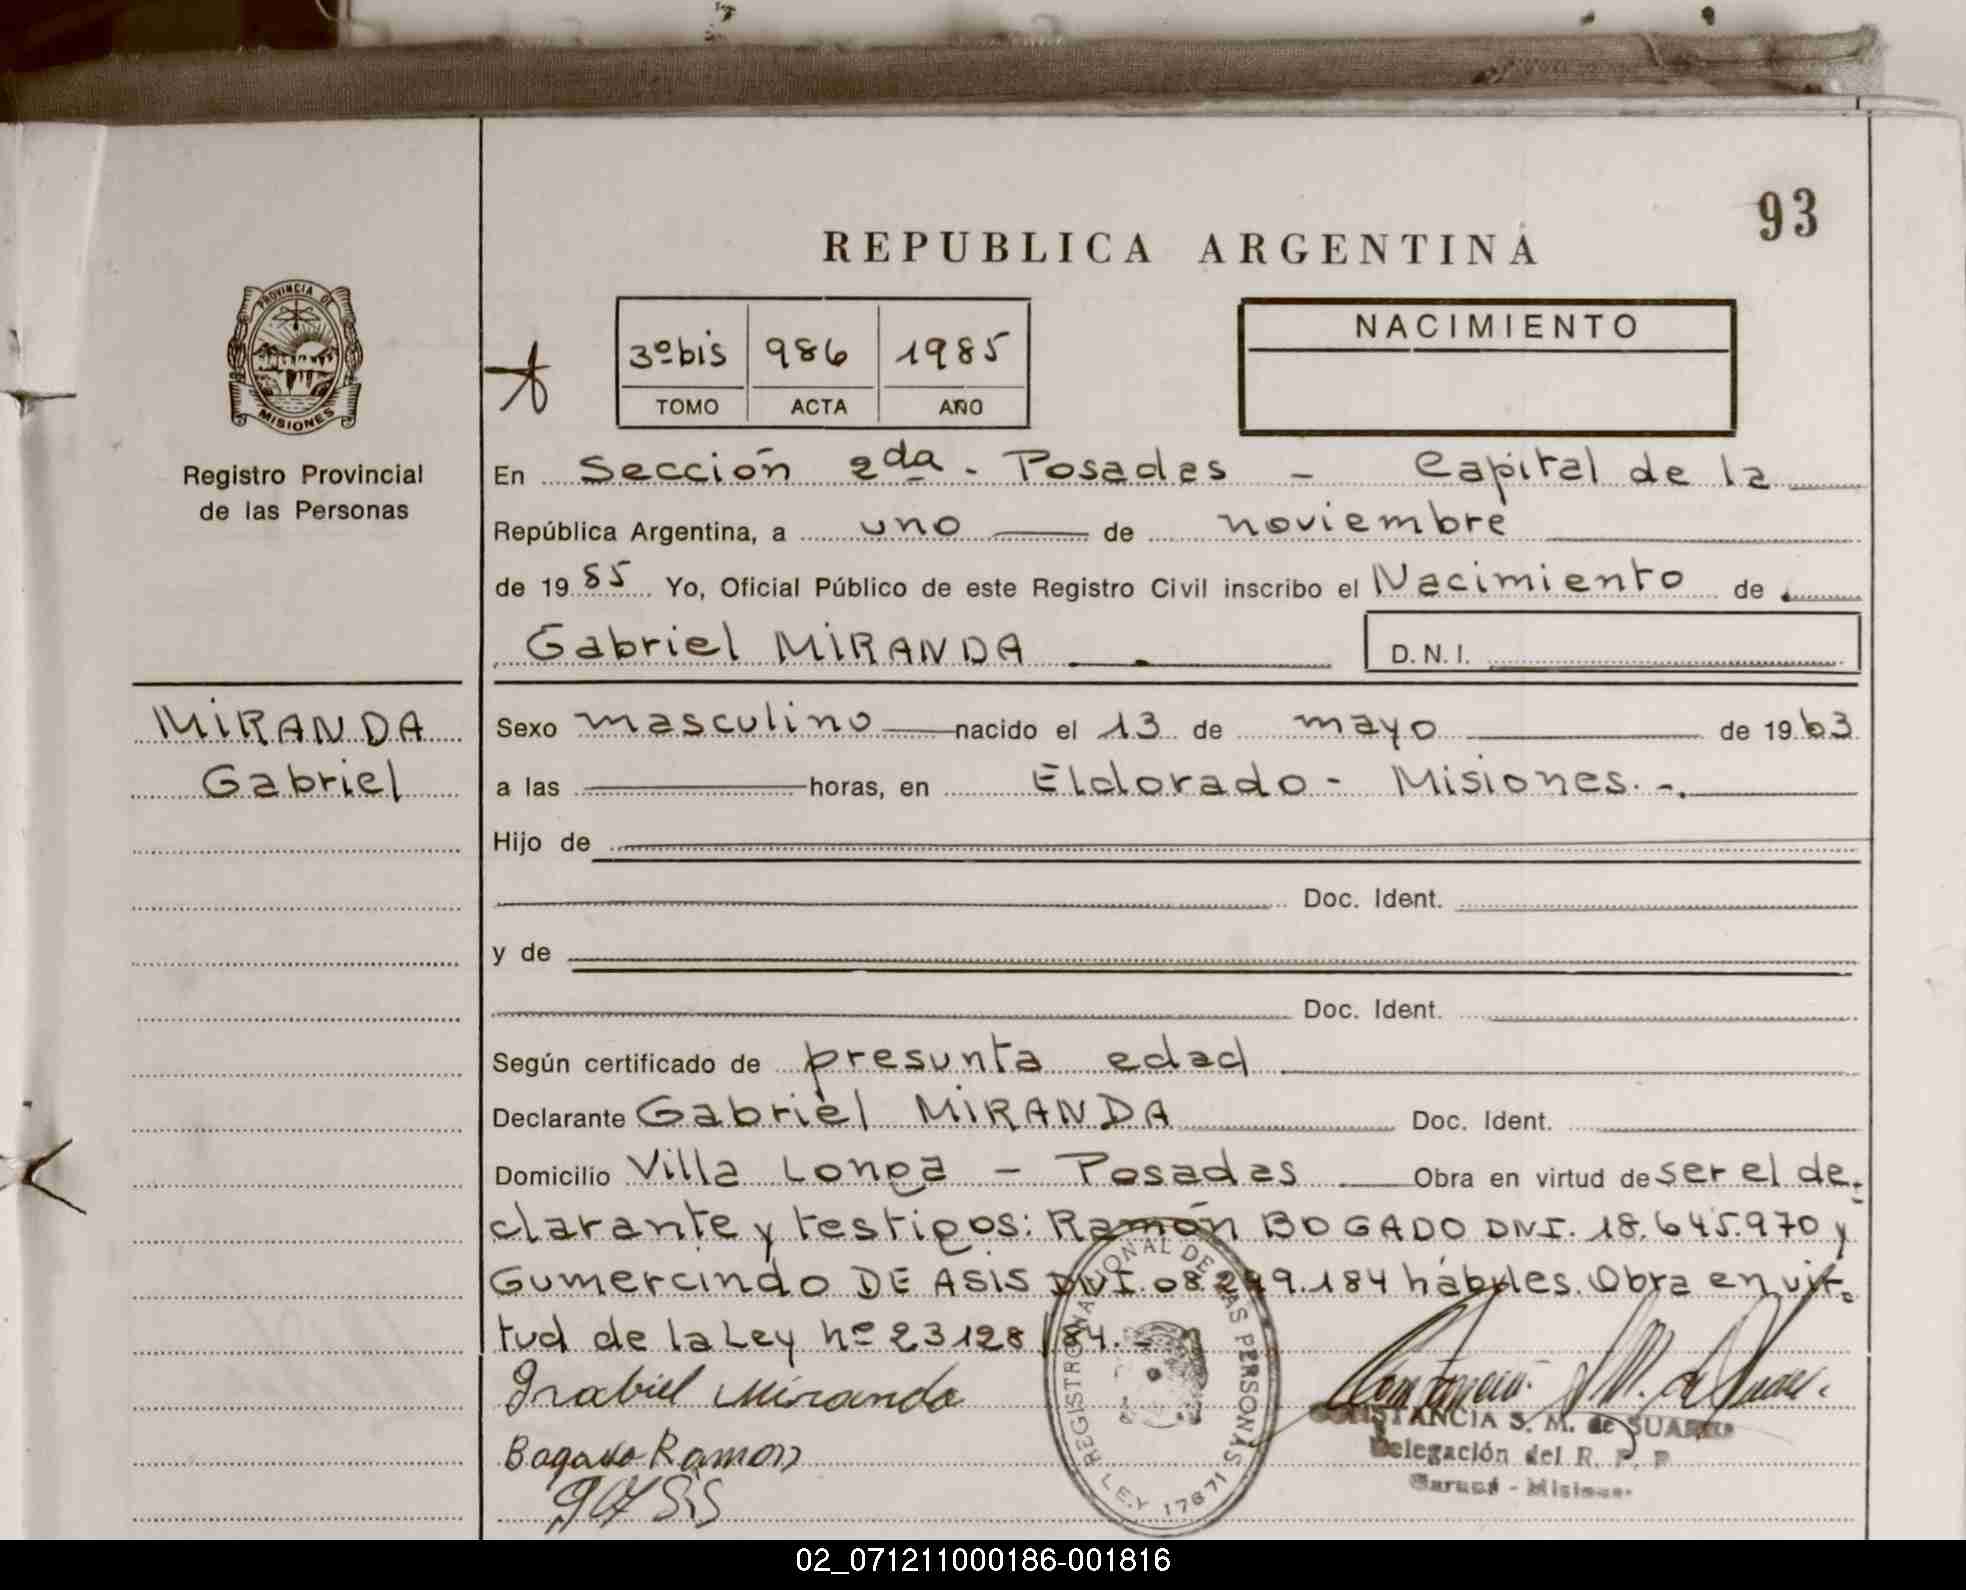 93
REPUBLICA ARGENTINA
PROVINCIA DE
MISIONES
Registro Provincial
de las Personas
3º bis 986 1985
TOMO ACTA AÑO
NACIMIENTO
En Sección 2da - Posadas - Capital de la
República Argentina, a uno de noviembre
de 1985 Yo, Oficial Público de este Registro Civil inscribo el Nacimiento de
Gabriel MIRANDA D.N.I.
MIRANDA
Gabriel
Sexo masculino nacido el 13 de mayo de 1963
a las horas, en Eldorado - Misiones.-.
Hijo de
Doc. Ident.
y de
Doc. Ident.
Según certificado de presunta edad
Declarante Gabriel MIRANDA Doc. Ident.
Domicilio Villa Longa - Posadas Obra en virtud de ser el de-
clarante y testigos: Ramón BOGADO DNI. 18.645.970 y
Gumercindo DE ASIS DNI. 08.299.184 hábiles. Obra en vir-
tud de la Ley nº 23128/84.-
Grabiel Miranda
Bogado Ramon
REGISTRO NACIONAL DE LAS PERSONAS
LEY 17671
CONSTANCIA S. M. de SUAREZ
Delegación del R. P. P
Garupá - Misiones
02_071211000186-001816